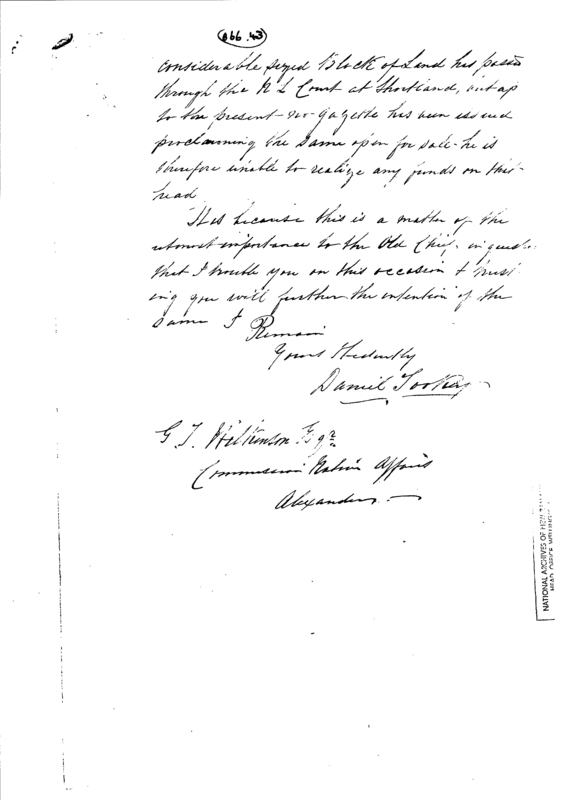 066.43
considerable sized Block of Land has passed
through the N L Court at Shortland, but up
to the present no gazette has been issued
proclaiming the same open for sale - he is
therefore unable to realize any funds on this
head
It is because this is a matter of the
utmost importance to the Old Chief
that I trouble you on this occasion & trust
ing you will further the intention of the
same I Remain
Yours Obediently
Daniel Tookey
G T Wilkinson Esqre
Commissioner Native Affairs
Alexandra
NATIONAL ARCHIVES OF NEW
HEAD OFFICE, WELLINGTON